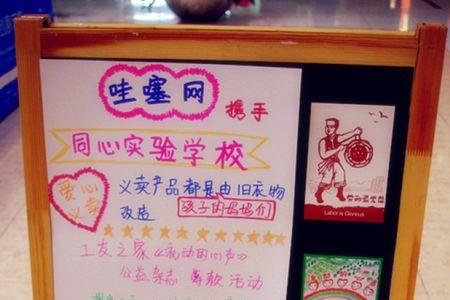 哇塞网 携手
同心实验学校
爱心义卖
义卖产品都是由旧衣物
改造 孩子的妈妈们
工友之家《流动的心声》
公益杂志 筹款活动
劳动最光荣
Labor is Glorious